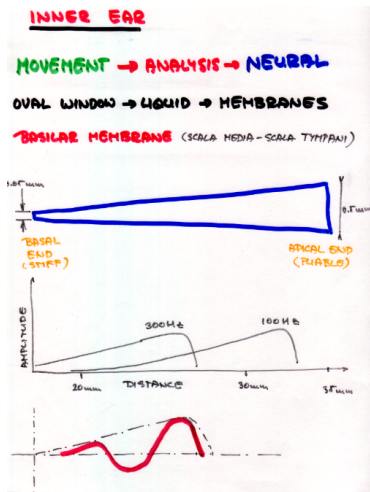 INNER EAR
MOVEMENT → ANALYSIS → NEURAL
OVAL WINDOW → LIQUID → MEMBRANES
BASILAR MEMBRANE (SCALA MEDIA - SCALA TYMPANI)
0.05mm
0.5mm
BASAL
END
(STIFF)
APICAL END
(PLIABLE)
AMPLITUDE
300Hz
100Hz
20mm
DISTANCE
30mm
35mm